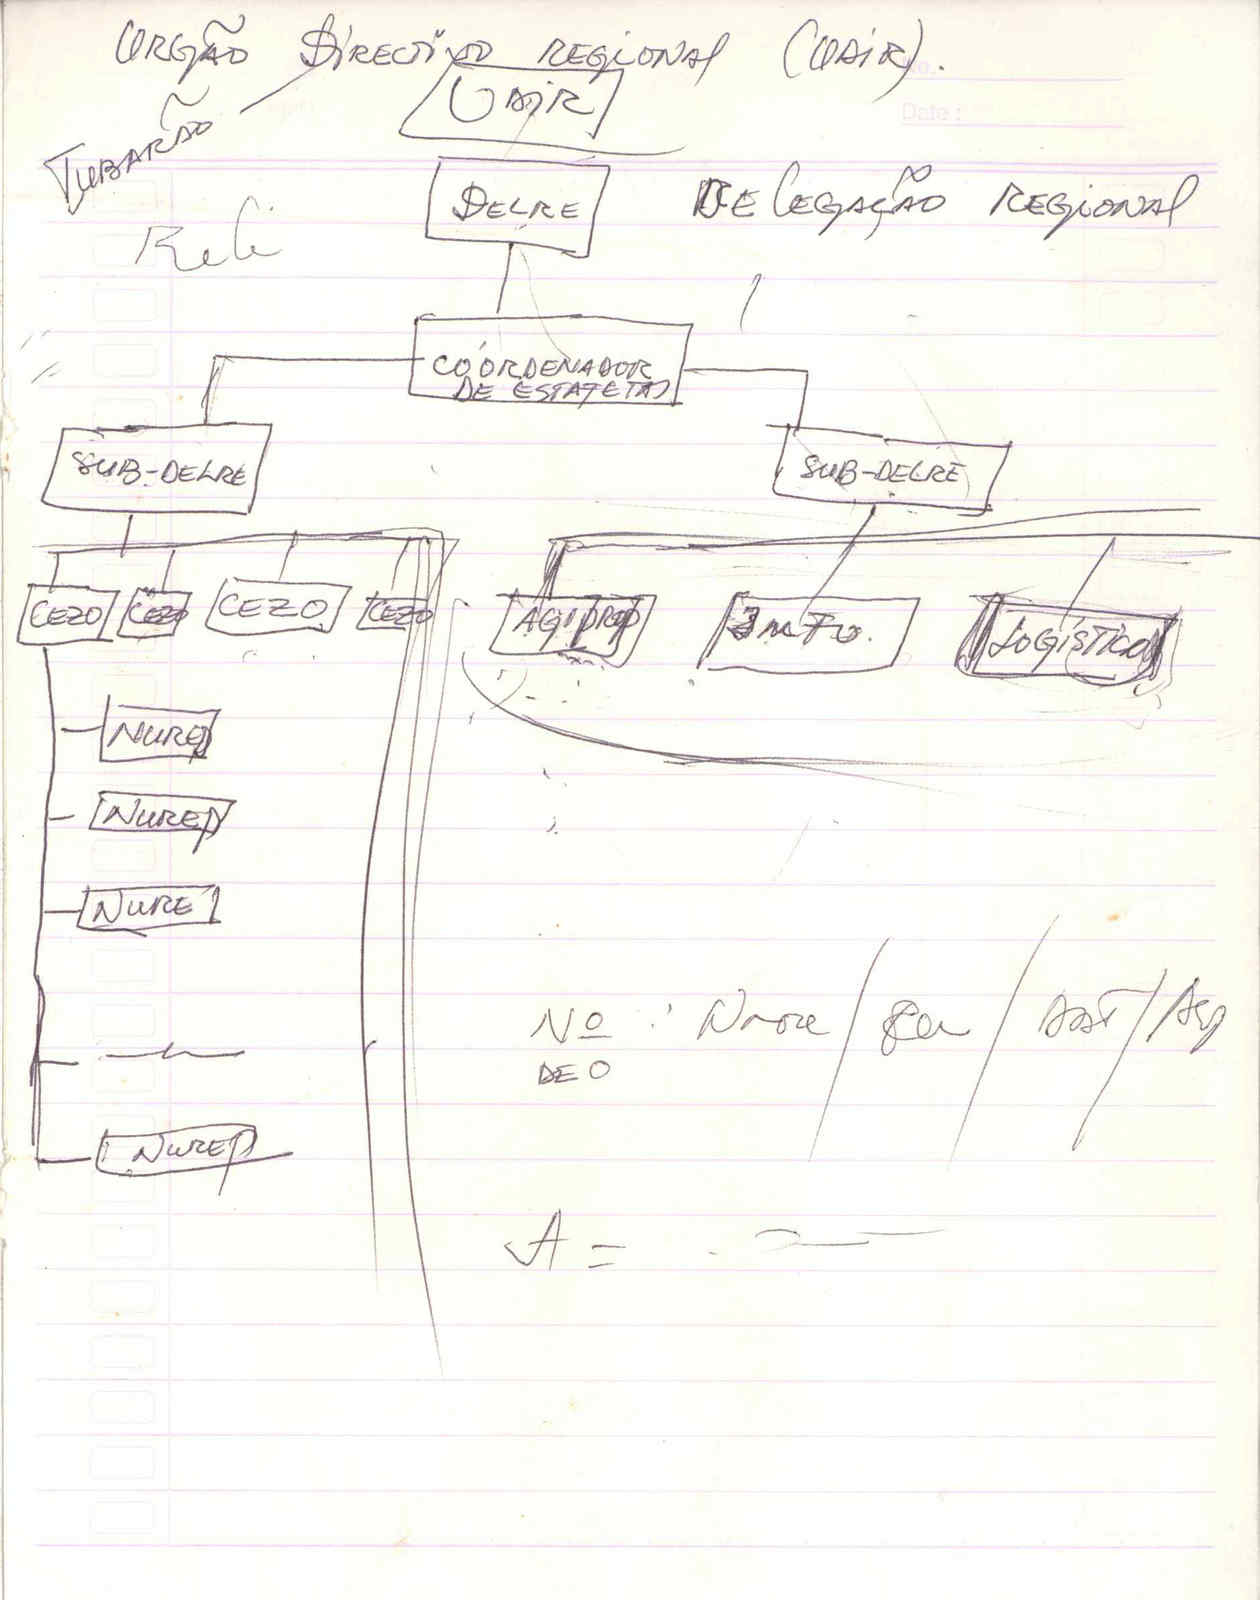 ORGÃO DIRECTIVO REGIONAL (ODIR).
No.
Date :
ODIR
TUBARÃO
DELRE
DELEGAÇÃO REGIONAL
COORDENADOR
DE ESTAFETAS
SUB-DELRE
SUB-DELRE
CEZO CEZO CEZO CEZO
AGIPROP INFO. LOGÍSTICA
NUREP
NUREP
NUREP
NUREP
Nº : Nome /
DE O
A =